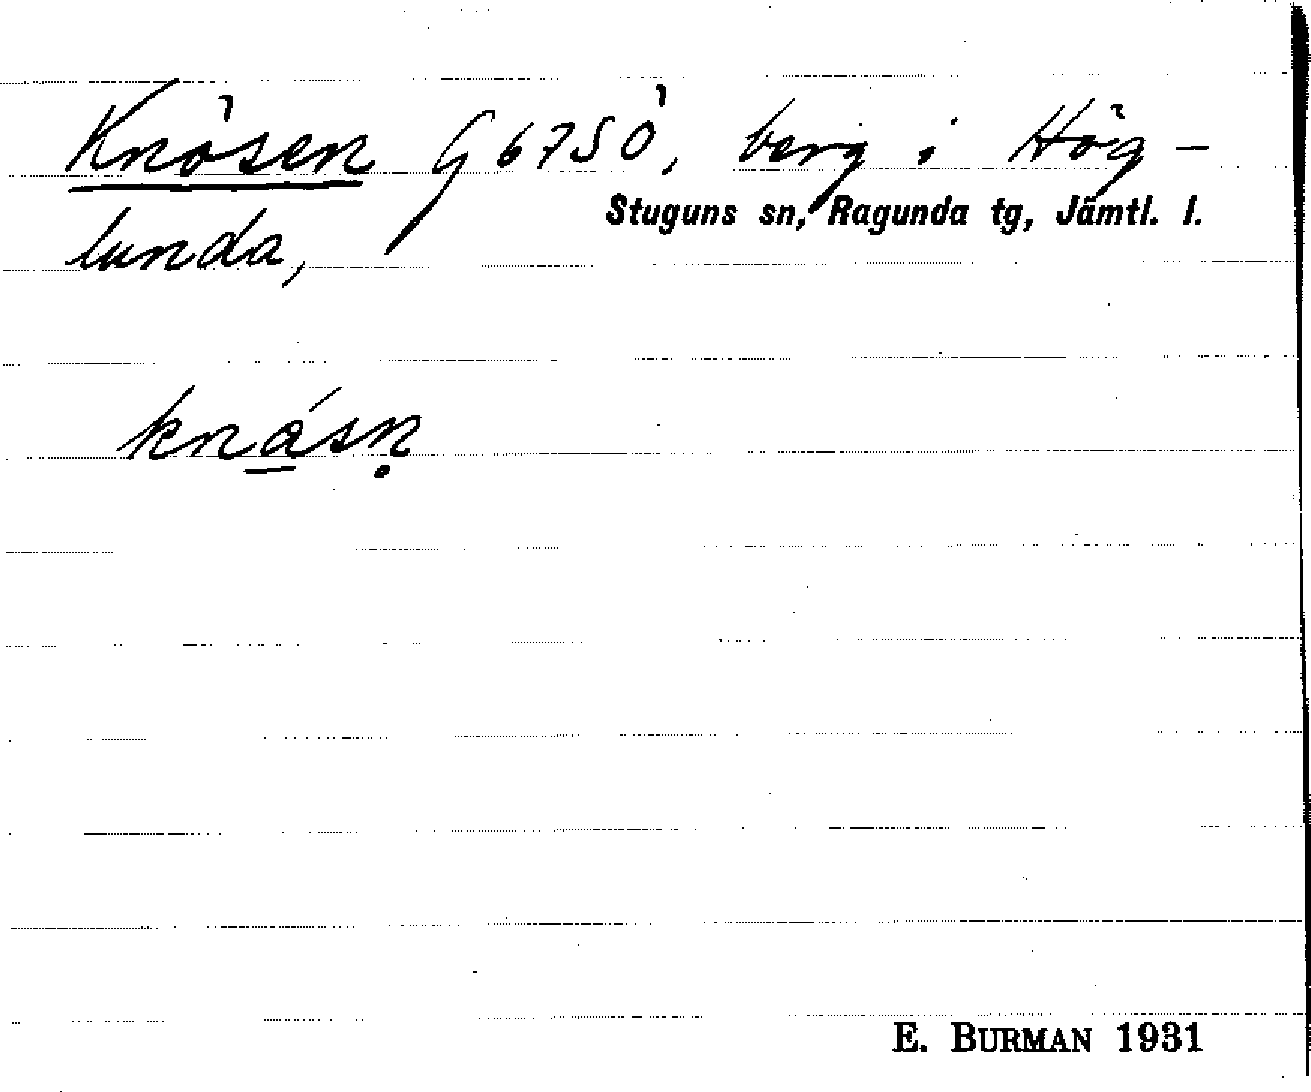 Knösen G 67SÖ, berg i Hög-
Stuguns sn, Ragunda tg, Jämtl. l.
lunda,
knásn̥
E. BURMAN 1931